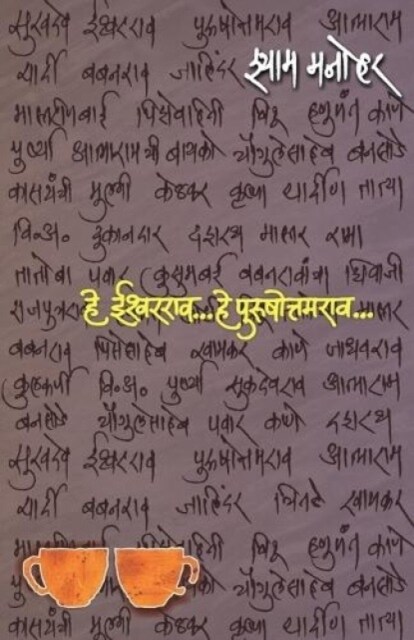 सुखदेव ईश्वरराव पुरुषोत्तमराव आत्माराम
श्याम मनोहर
यादी बबनराव जालिंदर
मास्तरीणबाई पिसेवहिनी हणुमंत काणे
पुष्पा आत्मारामची बायको चौगुलेसाहेब बनसोडे
मुल्ली केळकर कृष्णा यादीण तात्या
वि.अ. दुकानदार दशरथ मास्तर रमा
तातोबा पवार कुसुमबाई बबनरावांचा शिवाजी
हे ईश्वरराव... हे पुरुषोत्तमराव...
बबनराव पिसेसाहेब खामकर काणे जाधवराव
कुलकर्णी वि.अ. पुष्पा सुकदेवराव आत्माराम
बनसोडे चौगुलेसाहेब पवार काणे दशरथ
सुखदेव ईश्वरराव पुरुषोत्तमराव आत्माराम
यादी बबनराव जालिंदर चितळे खामकर
हणुमंत काणे
बायको चौगुलेसाहेब बनसोडे
मुल्ली केळकर कृष्णा यादीण तात्या